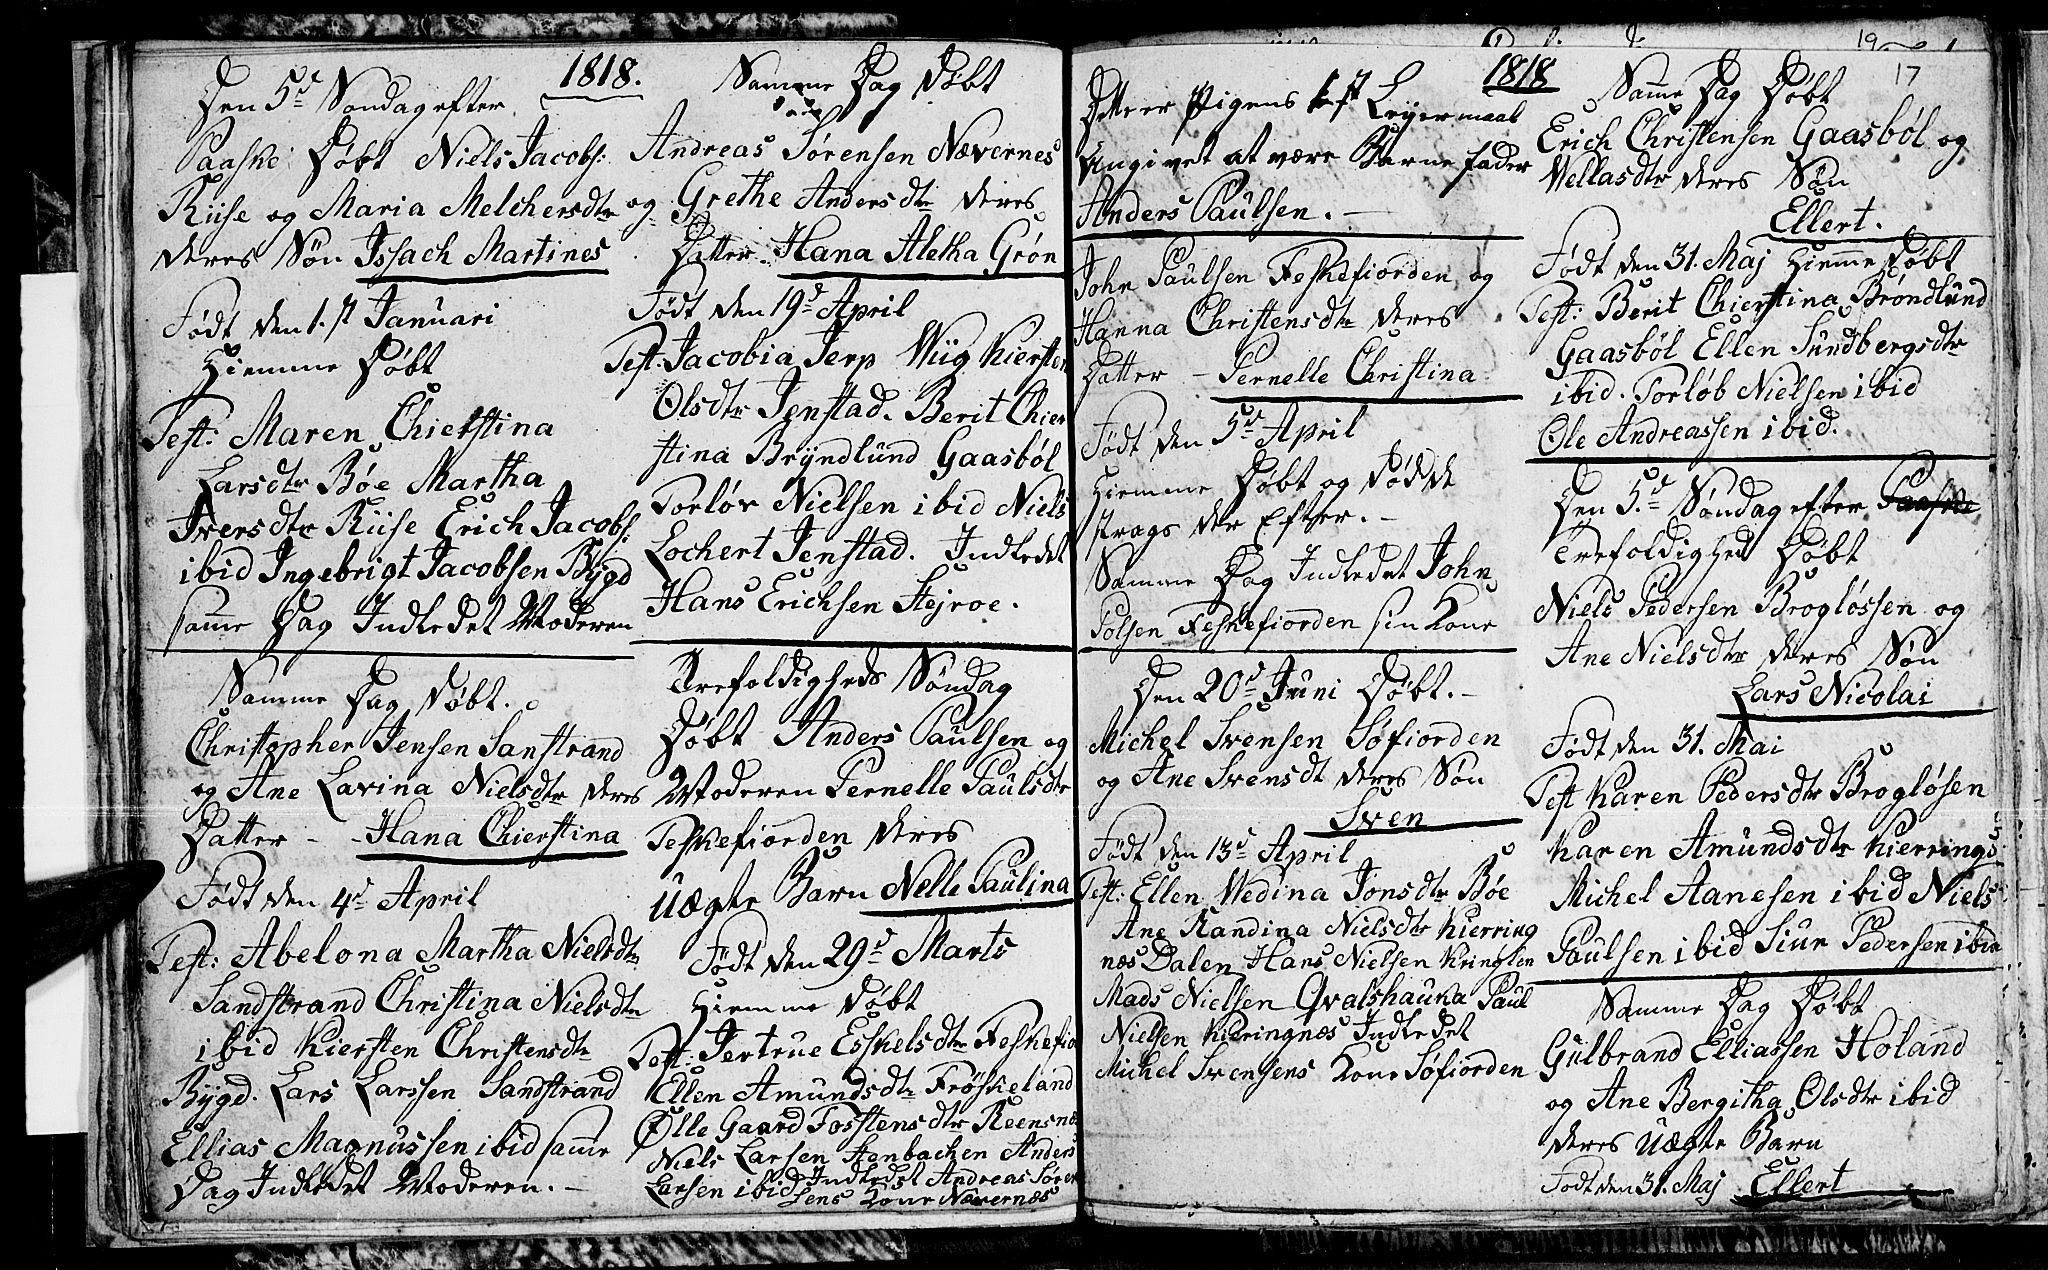 1818.
Den 5te Søndag efter
Paaske Døbt Niels Jacobs:
Riise og Maria Melchersdtr
deres Søn Issach Martines
Født den 1.st Januari
Hiemme Døbt
Test: Maren Chierstina
Larsdtr Bøe Martha
Iversdtr Riise Erich Jacobs:
ibid Ingebrigt Jacobsen Bygd
samme Dag Indledet Moderen
Samme Dag Døbt.
Christopher Jensen Sanstrand
og Ane Lavina Nielsdtr deres
Datter - - Hana Chierstina
Født den 4d April
Test: Abelona Martha Nielsdtr
Sandstrand Christina Nielsdtr
ibid Kiersten Christensdtr
Bygd. Lars Larssen Sandstrand
Ellias Magnussen ibid samme
Dag Indledet Moderen. -
Samme Dag Døbt
Andreas Sørensen Nævernes
og Grethe Andersdtr deres
Datter Hana Aletha Grøn
Født den 19d April
Test: Jacobia Jerp Wiig Kiersten
Olsdtr Jenstad. Berit Chier
stina Bryndlund Gaasbøl
Torløv Nielsen ibid Niels
Lochert Jenstad. Indledet
Hans Erichsen Stejroe.
Trefoldigheds Søndag
Døbt Anders Paulsen og
Moderen Pernelle Paulsdtr
Feskefiorden deres
Uægte Barn Nelle Paulina
Født den 29d Marts
Hiemme Døbt
Test: Jertrue Esskelsdtr Feskefio
Ellen Amundsdtr Frøskeland
Ølle Gaard Tostensdtr Reensnæ
Niels Larsen Stenbacken Anders
Larsen ibid Indledet Andreas Søren
sens Kone Nævernæs
19
17
1818
Dette er Pigens 1st Leyermaal
Angivet at være Barne fader
Anders Paulsen. -
John Paulsen Feskefiorden og
Hanna Christensdtr deres
Datter - Pernelle Christina
Født den 5d April
Hiemme Døbt og Dødde
strags der Efter. -
Samme Dag Indledet John
Polsen Feskefiorden sin Kone
Den 20d Juni Døbt. -
Michel Svensen Søfiorden
og Ane Svensdt deres Søn
Sven
Født den 13d April
Test: Ellen Medina Jonsdtr Bøe
Ane Randina Nielsdtr Kierring
næs Dalen Hans Nielsen Kringlen
Mads Nielsen Qvalshauka Paul
Nielsen Kieringnæs Indledet
Michel Svensens Kone Søfiorden
Samme Dag Døbt
Erich Christensen Gaasbøl og
Mellasdtr deres Søn
Ellert.
Født den 31. Maj Hiemme Døbt
Test: Berit Chierstina Brøndlund
Gaasbøl Ellen Sundbergsdtr
ibid. Torløb Nielsen ibid
Ole Andreassen ibid.
Den 5.d Søndag efter Paaske
Trefoldighed Døbt
Niels Pedersen Brogløssen og
Ane Nielsdtr deres Søn
Lars Nicolai
Født den 31. Mai
Test Karen Pedersdtr Brogløsen
Karen Amundsdtr Kierrings
Michel Aanesen ibid Niels
Paulsen ibid Siur Pedersen ibid
Samme Dag Døbt
Gulbrand Elliassen Holand
og Ane Bergitha Olsdtr ibid
deres Uægte Barn
Født den 31. Maj Ellert